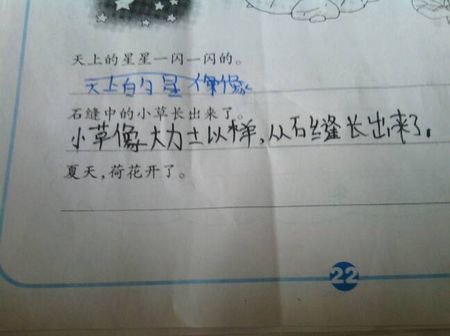 天上的星星一闪一闪的。
天上的星像像
石缝中的小草长出来了。
小草像大力士以样,从石缝长出来了。
夏天,荷花开了。
22